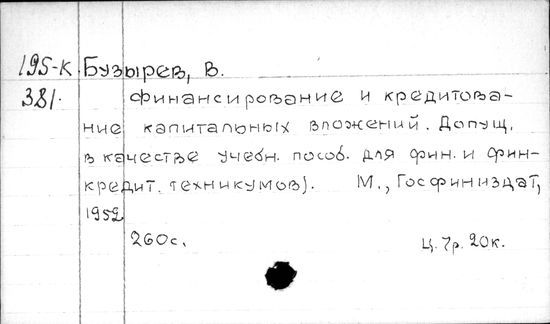 195-К Бузырев, В.
381. Финансирование и кредитова-
ние капитальных вложений. Допущ.
в качестве учебн. пособ. для фин. и фин-
кредит. техникумов). М., Госфиниздат,
1952
260с. Ц. 7р. 20к.